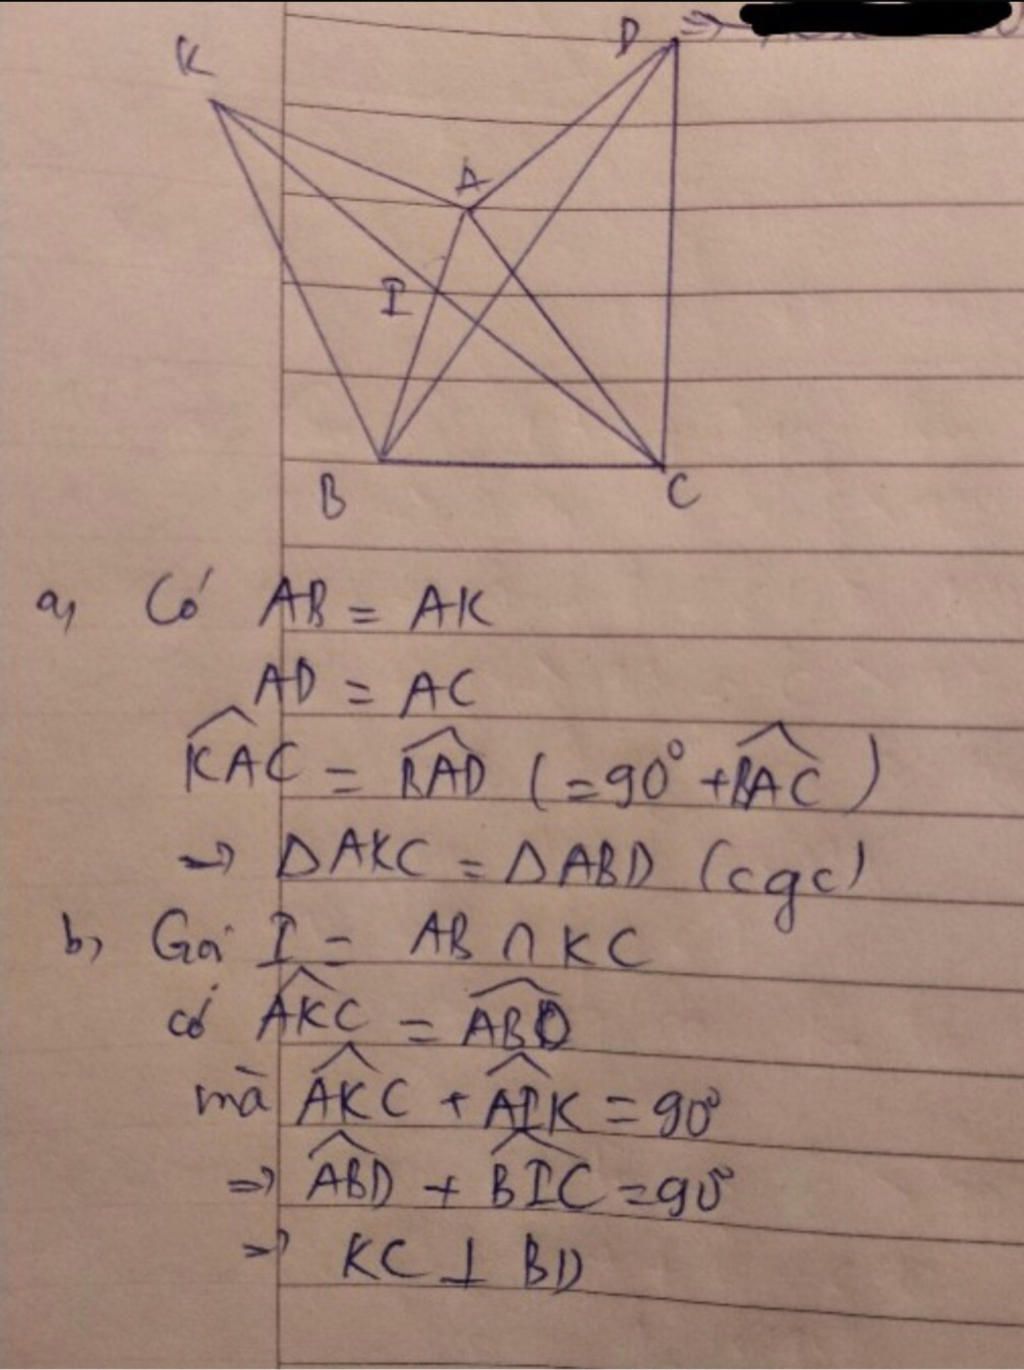 K
D
A
I
B
C
a, Có AB = AK
AD = AC
\widehat{KAC} = \widehat{BAD} (=90° + \widehat{BAC})
→ ΔAKC = ΔABD (cgc)
b, Gọi I = AB ∩ KC
có \widehat{AKC} = \widehat{ABD}
mà \widehat{AKC} + \widehat{AIK} = 90°
⇒ \widehat{ABD} + \widehat{BIC} = 90°
⇒ KC ⊥ BD